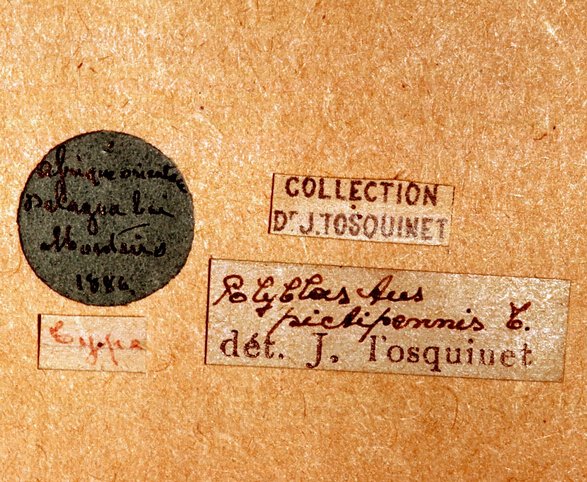 Afrique orientale
Delagoa bai
Monteiro
1884
Type
COLLECTION
Dr J. TOSQUINET
Polyblastus
pictipennis T.
dét. J. Tosquinet